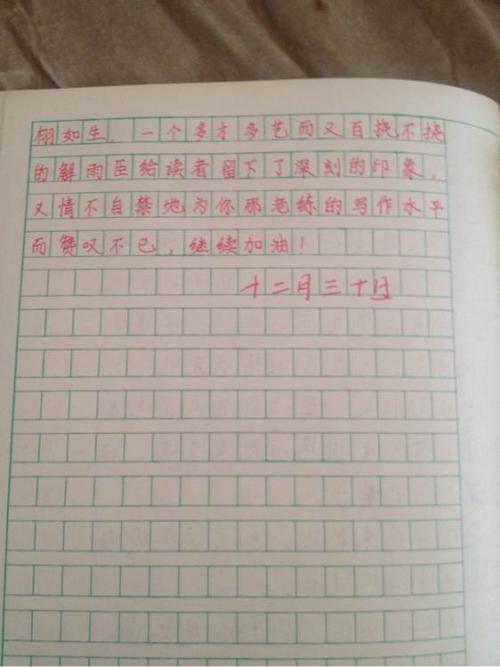 栩如生，一个多才多艺而又百挠不挠
的解雨臣给读者留下了深刻的印象，
又情不自禁地为你那老练的写作水平
而赞叹不已，继续加油！
十二月三十日